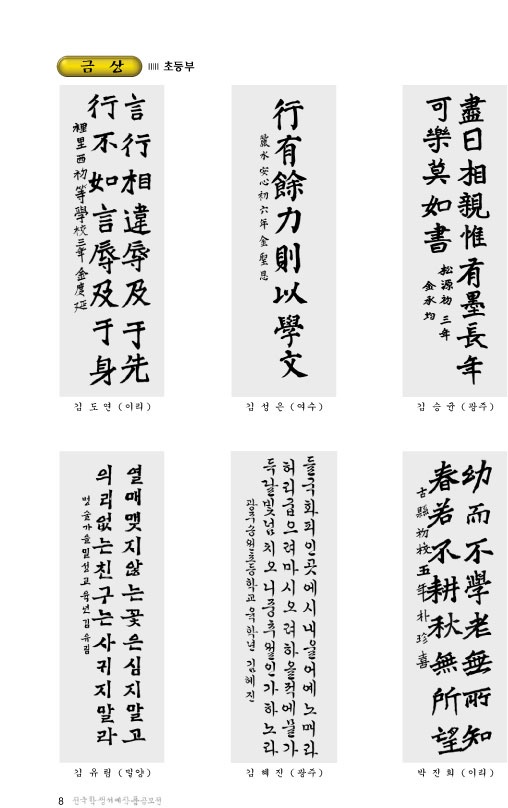 금 상
초등부
言行相違辱及于先
行不如言辱及于身
裡里西初等學校三年 金度延
김 도 연 (이리)
行有餘力則以學文
麗水 安心初 六年 金聖恩
김 성 은 (여수)
盡日相親惟有墨長年
可樂莫如書
松源初 三年
金承均
김 승 균 (광주)
열매맺지않는꽃은심지말고
의리없는친구는사귀지말라
김 유 림 (밀양)
들국화피인곳에시내을어예노매라
허리굽으려마시오려하올적에물가
득달빛넘치오니중추월인가하노라
김 혜 진 (광주)
幼而不學老無所知
春若不耕秋無所望
古縣初校五年 朴珍喜
박 진 희 (이리)
8